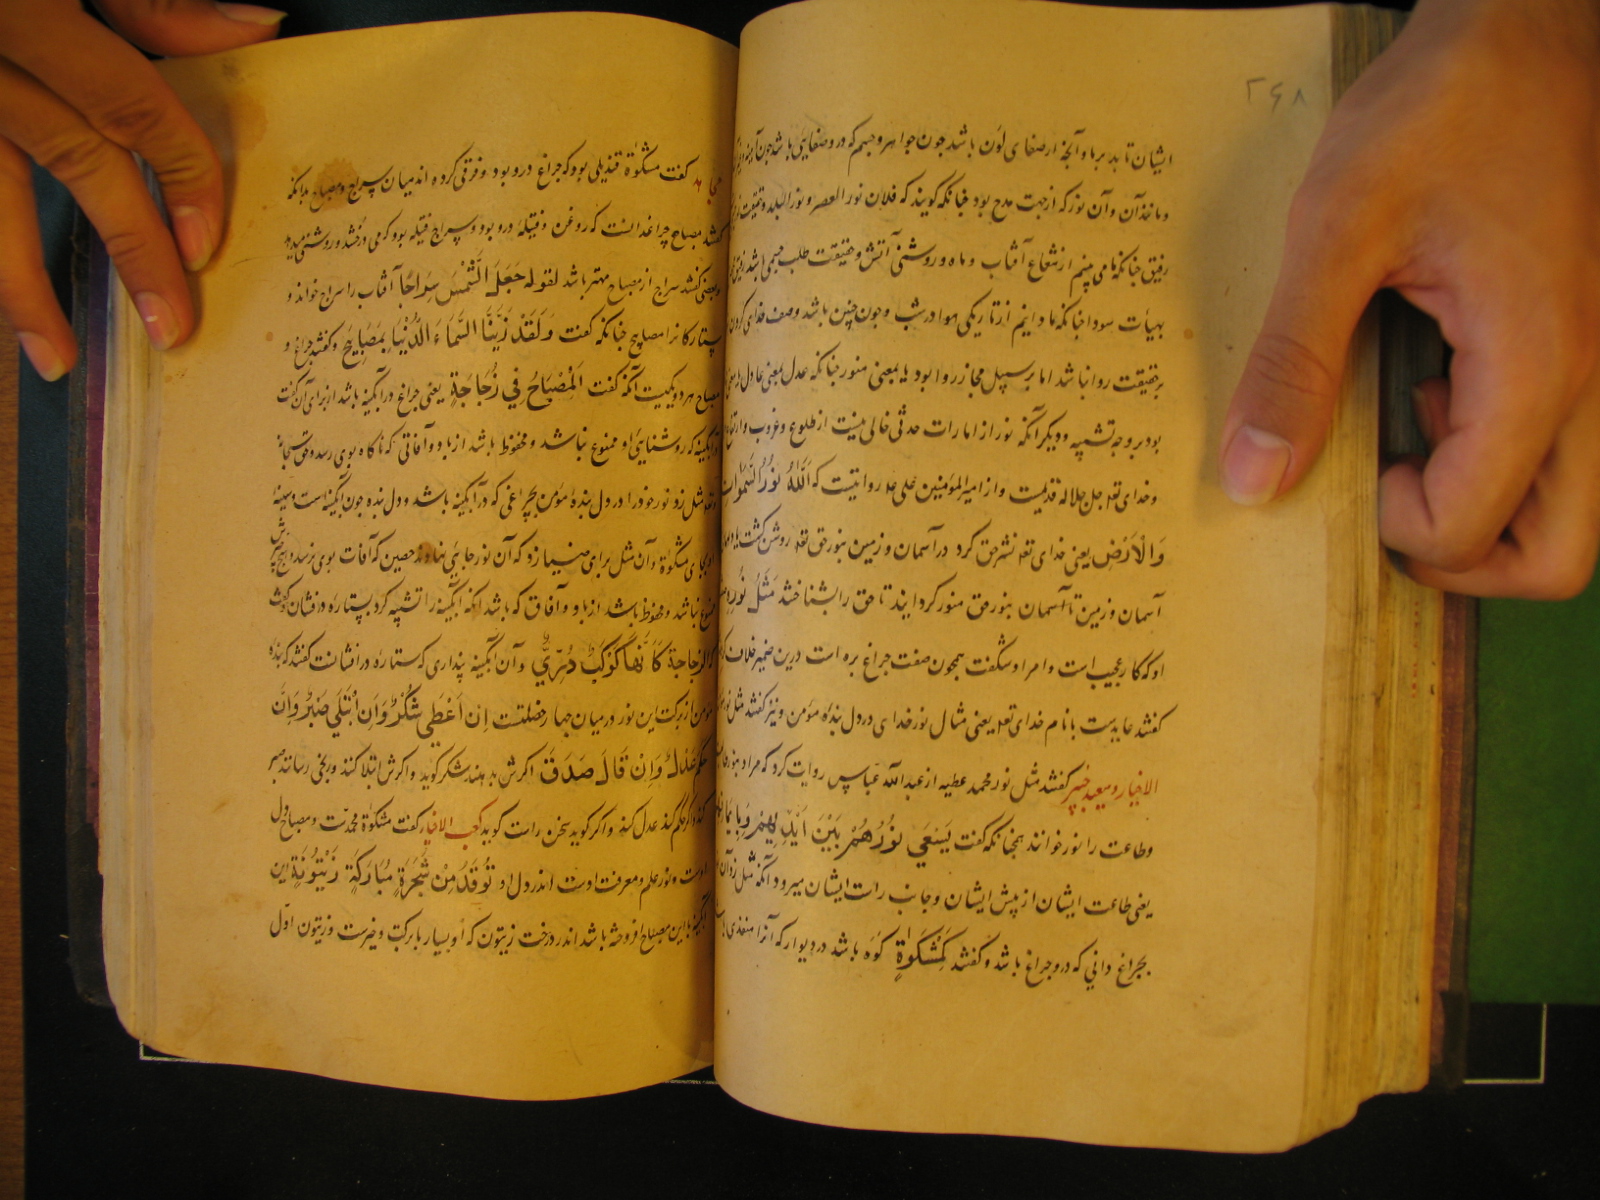 ۲۶۸
ایشان تابد برما و آنچه از صفای لون باشد چون جواهر و جسم که درو صفایی باشد چون آینه
و مانند آن و آن نور که از جهت مدح بود چنانکه کویند که فلان نور العصر و نور البلد و حقیقت
رقیق چنانکه ما می بینم از شعاع آفتاب و ماه و روشنی آتش و حقیقت
بهیأت سودا چنانکه ما دانیم از تاریکی هوا در شب و چون چنین باشد وصف خدای
برحقیقت روا نباشد اما بر سبیل مجاز روا بود یا بمعنی منور چنانکه عدل بمعنی عادل
بود بر وجه تشبیه و دیکر آنکه نور از امارات حدثی خالی نیست از طلوع و غروب و
و خدای تعه جل جلاله قدیمست و از امیر المؤمنین علی عه روایتست که اَللّٰهُ نُورُ السَّمٰوَاتِ
وَالْاَرْضِ یعنی خدای تعه نشر حق کرد در آسمان و زمین بنور حق تعه روشن کشت
آسمان و زمین تا آسمان بنور حق منور کردایند تا حق را بشناختند مَثَلُ نُورِهِ
او که کار عجیب است و امر او شکفت همچون صفت چراغ بره است درین ضمیر خلاف
کفتند عایدست با نام خدای تعه یعنی مثال نور خدای در دل بنده مؤمن و نیز کفتند مثل
الاخبار و سعید جبیر کفتند مثل نور محمد عطیه از عبد الله عباس روایت کرد که مراد بنور
و طاعت را نور خوانند همچنانکه کفت یَسْعَی نُورُهُمْ بَیْنَ اَیْدِیهِمْ وَبِاَیْمَانِهِمْ
یعنی طاعت ایشان از پیش ایشان و جانب راست ایشان میرود آنکه مثل زد آن
بچراغ دانی که درو چراغ باشد و کفتند کَمِشْکَوةٍ کوه باشد در دیوار که آنرا منفذی
مجاهد کفت مشکوة قندیلی بود که چراغ درو بود و فرقی کرده اند میان سراج و مصباح بدانکه
کفتند مصباح چراغدانست که روغن و فتیله درو بود و سراج فتیله بود که می درفشد و روشنی میدهد
و بعضی کفتند سراج از مصباح مهتر باشد لقوله جَعَلَ الشَّمْسَ سِرَاجًا آفتاب را سراج خواند و
ستارکانرا مصابیح چنانکه کفت وَلَقَدْ زَیَّنَّا السَّمَاءَ الدُّنْیَا بِمَصَابِیحَ و کفتند چراغ و
مصباح هر دو یکیست آنکه کفت اَلْمِصْبَاحُ فِی زُجَاجَةٍ یعنی چراغ در آبکینه باشد از برای آن کفت
در آبکینه که روشنایی او ممنوع نباشد و محفوظ باشد از باد و آفاتی که ناکاه بوی رسد
تعه مثل زد نور خود را در دل بنده مؤمن بچراغی که در آبکینه باشد و دل بنده چون آبکینه است و سینه
او بجای مشکوة و آن مثل برای
ممنوع نباشد و محفوظ باشد از باد و آفاق که باشد آنکه آبکینه را تشبیه کرد بستاره درفشان کفت
اَلزُّجَاجَةُ کَاَنَّهَا کَوْکَبٌ دُرِّیٌّ و آن آبکینه پنداری که ستاره درافشانست کفتند که بنده
مؤمن از برکت این نور در میان چهار خصلتست اِنْ اُعْطِیَ شَکَرَ وَاِنْ اُبْتُلِیَ صَبَرَ وَاِنْ
حَکَمَ عَدَلَ وَاِنْ قَالَ صَدَقَ اکرش بدهند شکر کوید و اکرش ابتلا کند و رنجی رسانند صبر
کند و اکر حکم کند عدل کند و اکر کوید سخن راست کوید کعب الاخبار کفت مشکوة محمدست و مصباح دل
اوست و نور علم و معرفت اوست اندر دل او تُوقَدُ مِنْ شَجَرَةٍ مُبَارَکَةٍ زَیْتُونَةٍ این
آبکینه با این مصباح افروخته باشد اندر درخت زیتون که او بسیار با برکت و خیرست و زیتون اول